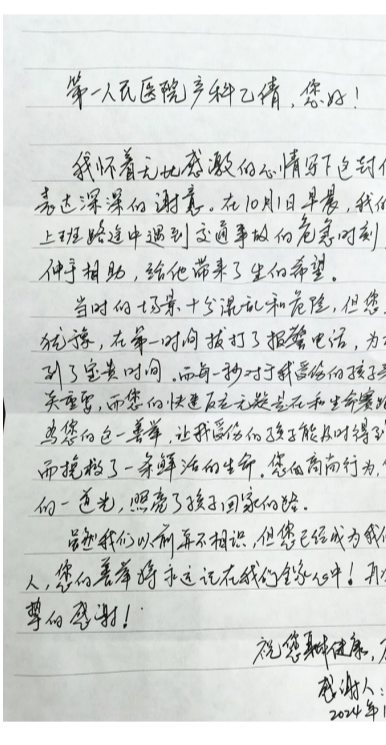 第一人民医院产科乙倩，您好！
我怀着无比感激的心情写下这封
表达深深的谢意。在10月1日早晨，我们
上班路途中遇到交通事故的危急时刻，
伸手相助，给他带来了生的希望。
当时的场景十分混乱和危险，但您
犹豫，在第一时间拨打了报警电话，为
到了宝贵时间。而每一秒对于我受伤的孩子
关重要，而您的快速反应无疑是在和生命赛
为您的这一善举，让我受伤的孩子能及时得到
而挽救了一条鲜活的生命。您的高尚行为，
的一道光，照亮了孩子回家的路。
虽然我们以前并不相识，但您已经成为我们
人，您的善举将永远记在我们全家心中！再
挚的感谢！
祝您身体健康，
感谢人：
2024年1